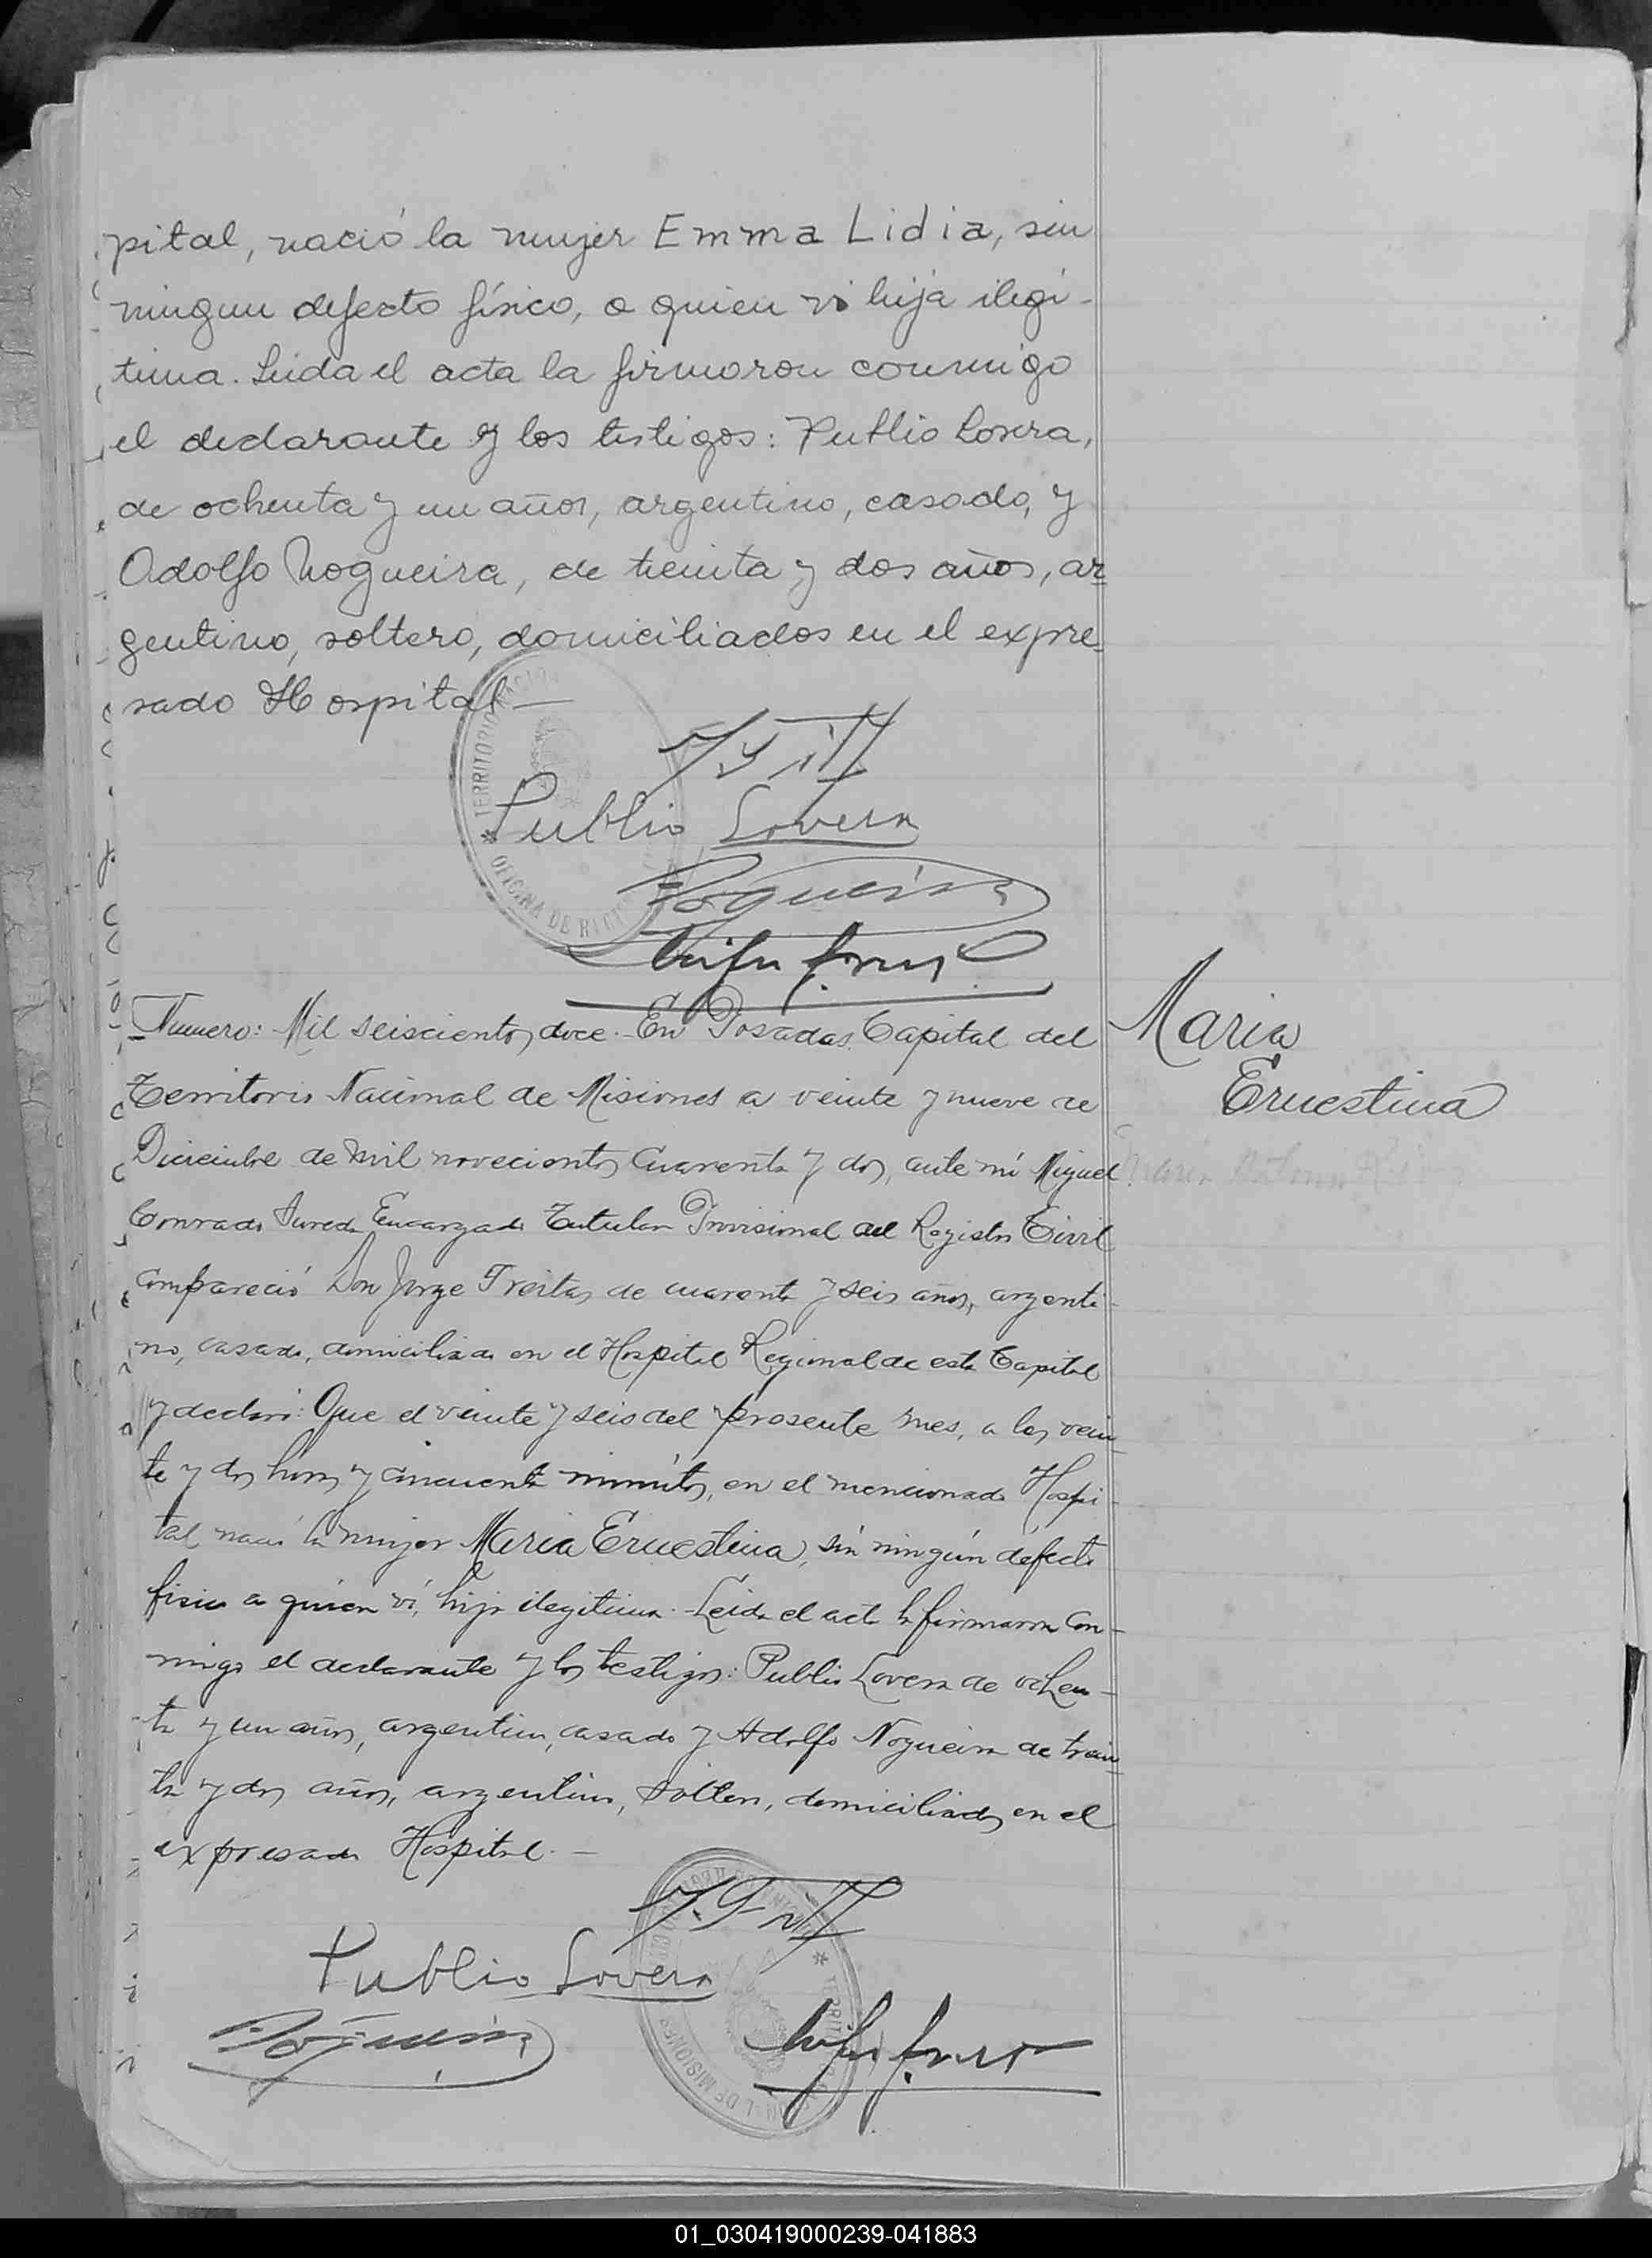 pital, nació la mujer Emma Lidia, sin
ningun defecto físico, a quien vi hija ilegi-
tima. Leida el acta la firmaron conmigo
el declarante y los testigos: Publio Lovera,
de ochenta y un años, argentino, casado, y
Adolfo Nogueira, de treinta y dos años, ar-
gentino, soltero, domiciliados en el expre-
sado Hospital—
TERRITORIO NACIO
Publio Lovera
OFICINA DE
Nogueira
Numero: Mil seiscientos doce. En Posadas Capital del
Maria
Ernestina
Territorio Nacional de Misiones a veinte y nueve de
Diciembre de mil novecientos cuarenta y dos, ante mí Miguel
Conrado Jureda Encargado Titular Provisional del Registro Civil
compareció Don Jorge Freitas de cuarenta y seis años, argenti-
no, casado, domiciliado en el Hospital Regional de esta Capital
y declaró: Que el veinte y seis del presente mes, a las vein-
te y dos horas y cincuenta minutos, en el mencionado Hospi-
tal nació la mujer Maria Ernestina, sin ningún defecto
fisico a quien ví, hija ilegitima. Leida el acta la firmaron con-
migo el declarante y los testigos: Publio Lovera de ochen-
ta y un años, argentino, casado y Adolfo Nogueira de trein-
ta y dos años, argentino, soltero, domiciliados en el
expresado Hospital.—
Publio Lovera
Nogueira
DE MISIONES
01_030419000239-041883